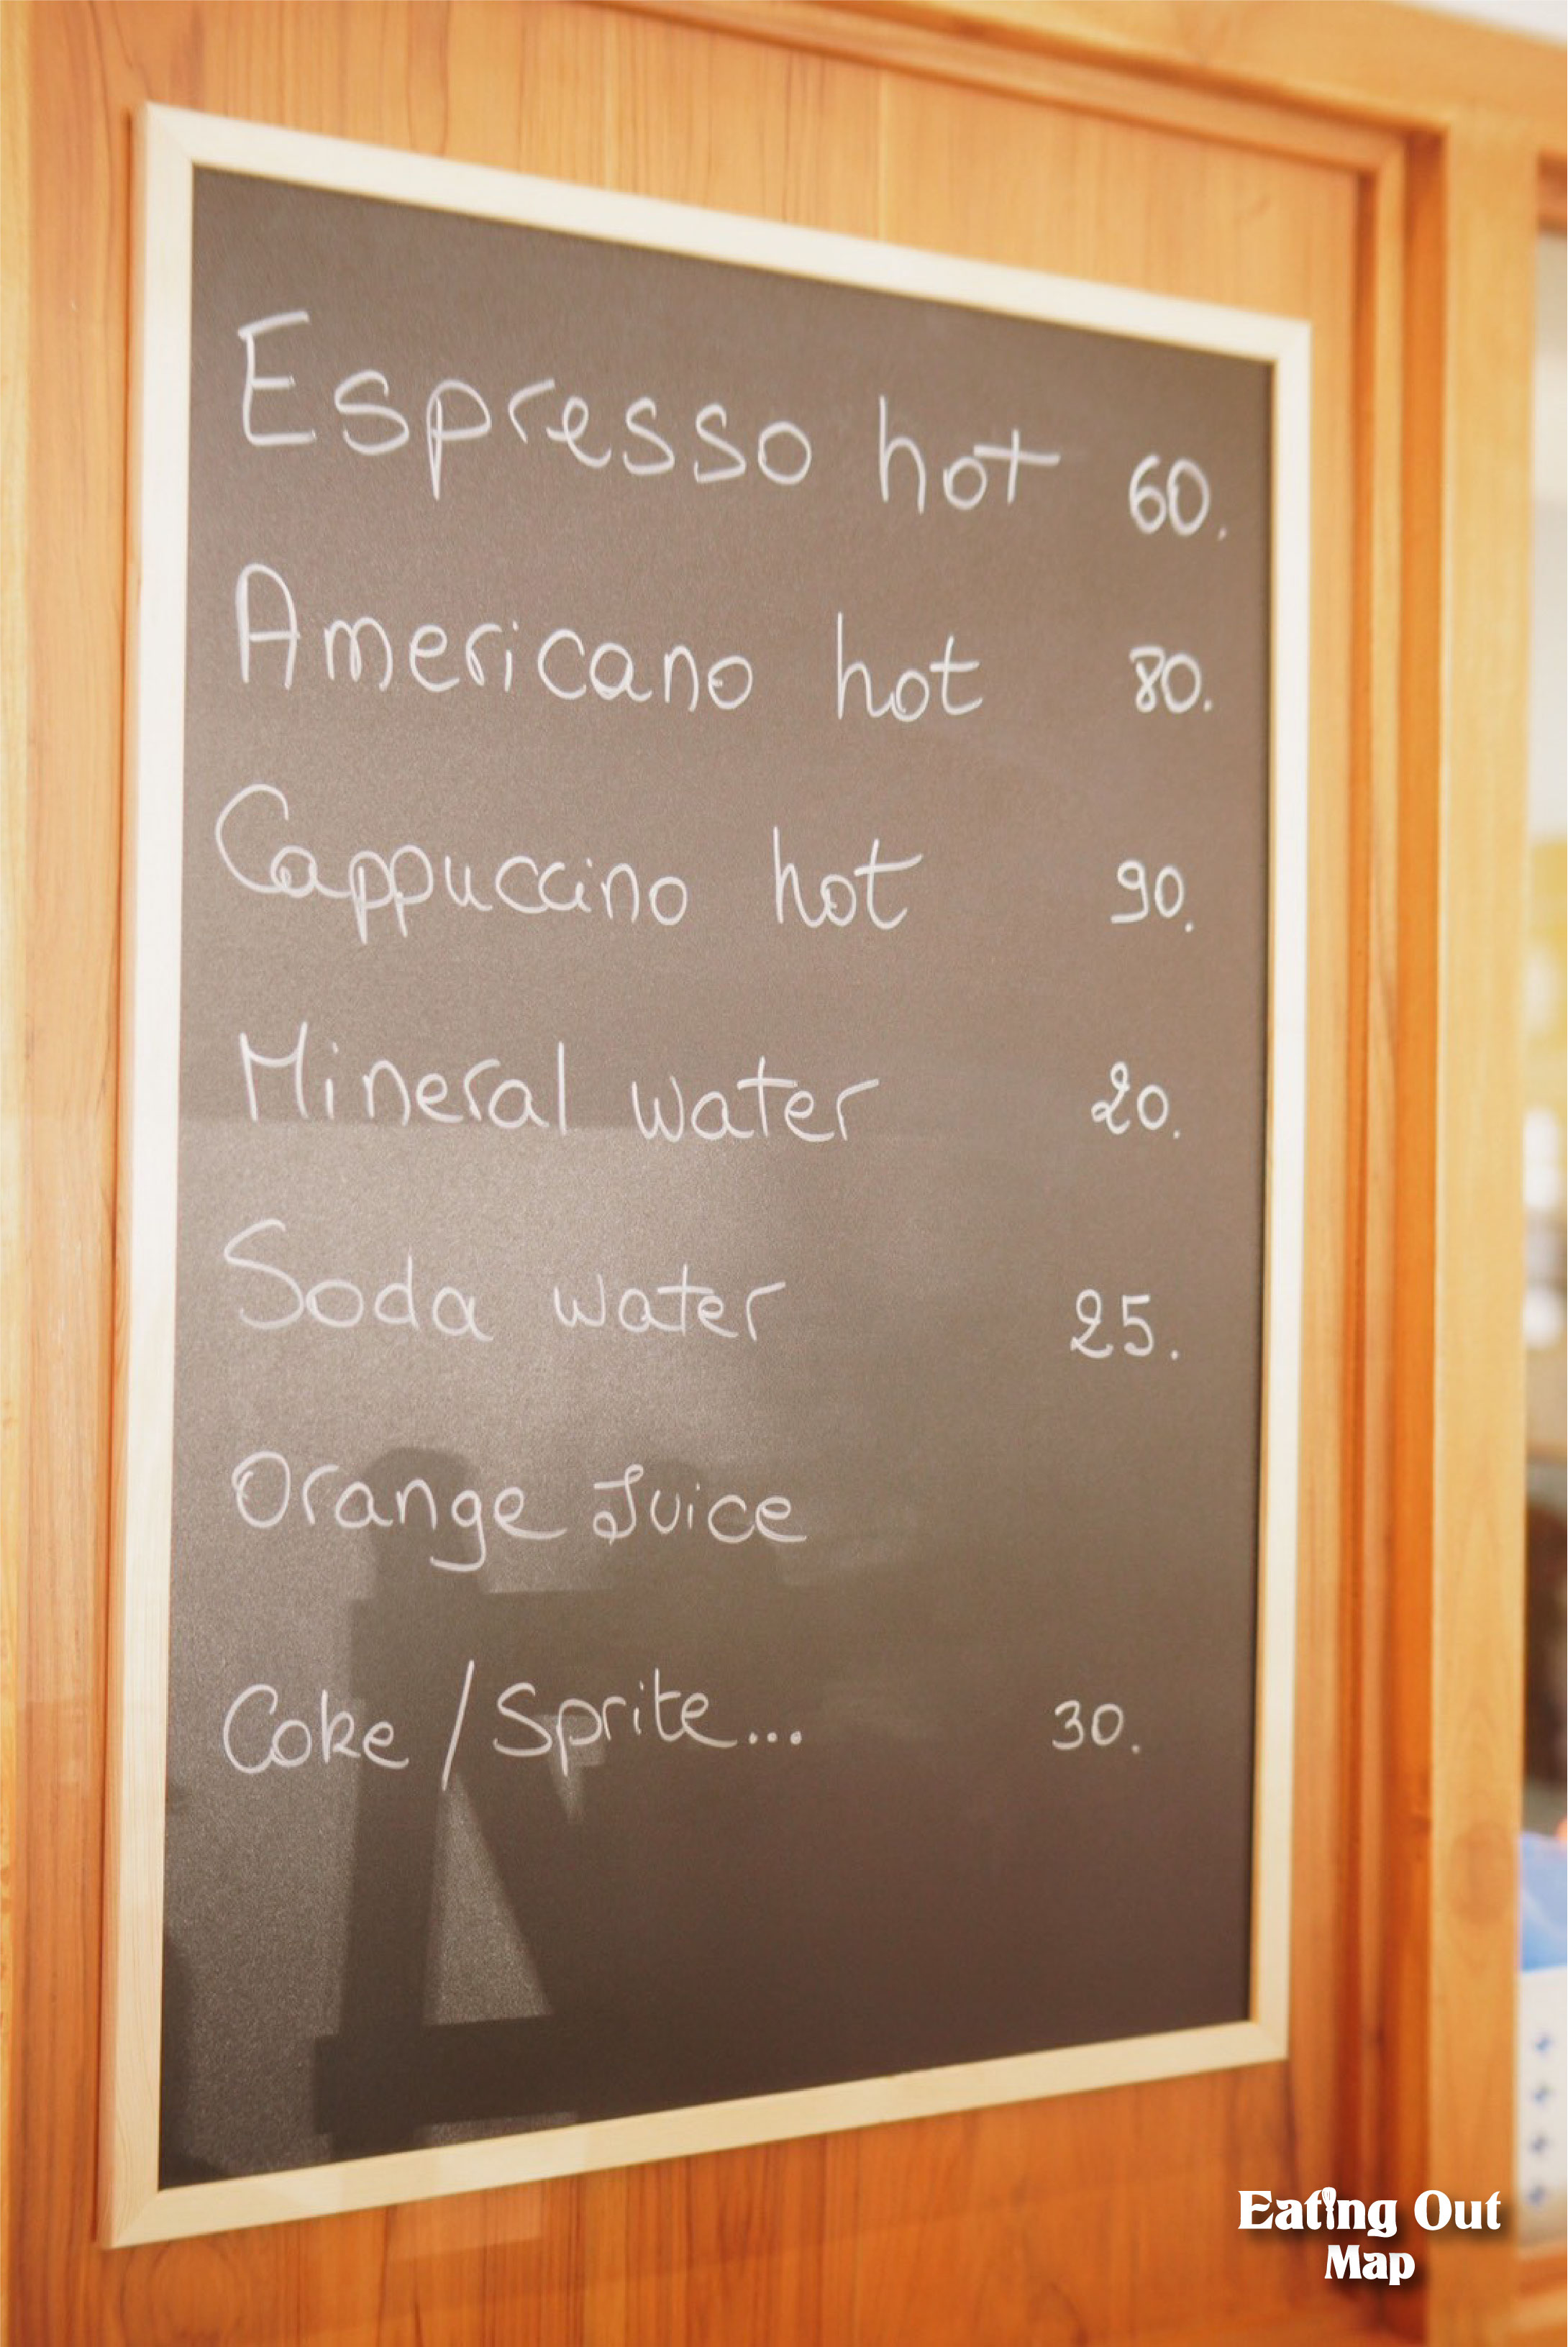 Espresso hot 60.
Americano hot 80.
Cappuccino hot 90.
Mineral water 20.
Soda water 25.
Orange Juice
Coke / Sprite... 30.
Eating Out
Map